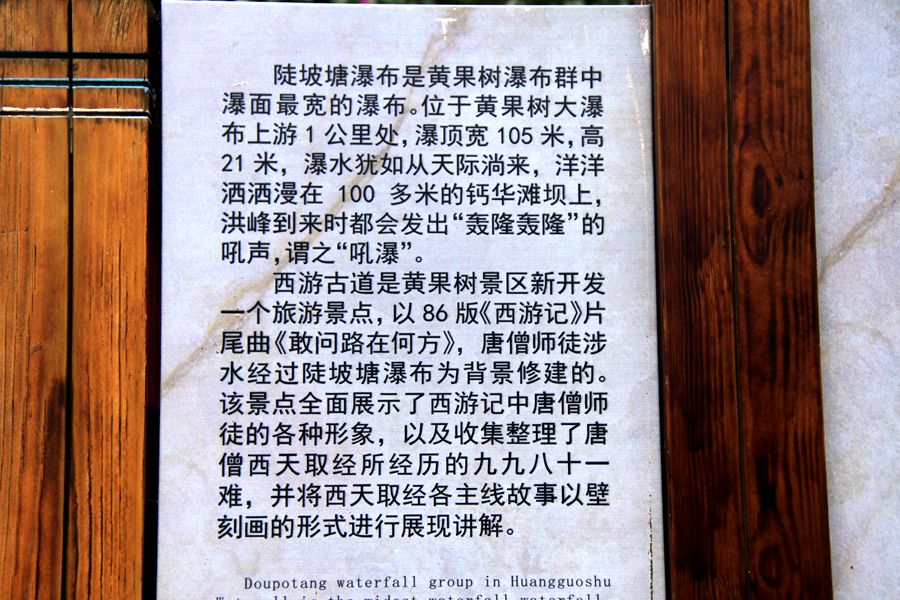 陡坡塘瀑布是黄果树瀑布群中
瀑面最宽的瀑布。位于黄果树大瀑
布上游1公里处，瀑顶宽105米，高
21米，瀑水犹如从天际淌来，洋洋
洒洒漫在 100 多米的钙华滩坝上，
洪峰到来时都会发出“轰隆轰隆”的
吼声，谓之“吼瀑”。
西游古道是黄果树景区新开发
一个旅游景点，以86版《西游记》片
尾曲《敢问路在何方》，唐僧师徒涉
水经过陡坡塘瀑布为背景修建的。
该景点全面展示了西游记中唐僧师
徒的各种形象，以及收集整理了唐
僧西天取经所经历的九九八十一
难，并将西天取经各主线故事以壁
刻画的形式进行展现讲解。
Doupotang waterfall group in Huangguoshu